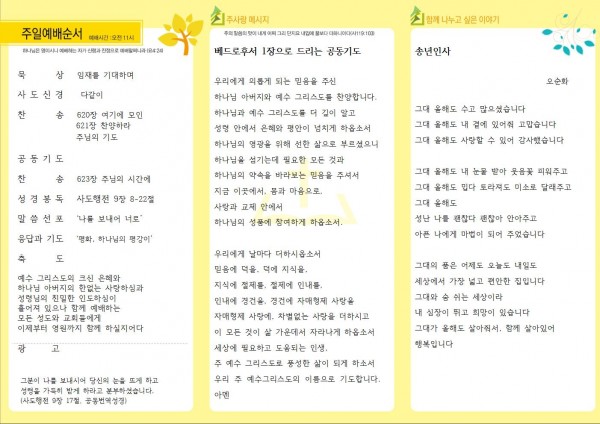 주일예배순서 예배시간 : 오전 11시
하나님은 영이시니 예배하는 자가 신령과 진정으로 예배할찌니라 (요4:24)
묵 상 임재를 기대하며
사 도 신 경 다같이
찬 송 620장 여기에 모인
621장 찬양하라
주님의 기도
공 동 기 도
찬 송 623장 주님의 시간에
성 경 봉 독 사도행전 9장 8-22절
말 씀 선 포 '나를 보내어 너로'
응답과 기도 '평화, 하나님의 평강이'
축 도
예수 그리스도의 크신 은혜와
하나님 아버지의 한없는 사랑하심과
성령님의 친밀한 인도하심이
흩어져 있으나 함께 예배하는
모든 성도와 교회들에게
이제부터 영원까지 함께 하실지어다
광 고
그분이 나를 보내시어 당신의 눈을 뜨게 하고
성령을 가득히 받게 하라고 분부하셨습니다.
(사도행전 9장 17절, 공동번역성경)
주사랑 메시지
주의 말씀의 맛이 내게 어찌 그리 단지요 내입에 꿀보다 더하니이다(시119:103)
베드로후서 1장으로 드리는 공동기도
우리에게 의롭게 되는 믿음을 주신
하나님 아버지와 예수 그리스도를 찬양합니다.
하나님과 예수 그리스도를 더 깊이 알고
성령 안에서 은혜와 평안이 넘치게 하옵소서
하나님의 영광을 위해 선한 삶으로 부르셨으니
하나님을 섬기는데 필요한 모든 것과
하나님의 약속을 바라보는 믿음을 주셔서
지금 이곳에서, 몸과 마음으로,
사랑과 교제 안에서
하나님의 성품에 참여하게 하옵소서.
우리에게 날마다 더하시옵소서
믿음에 덕을, 덕에 지식을,
지식에 절제를, 절제에 인내를,
인내에 경건을, 경건에 자매형제 사랑을
자매형제 사랑에, 차별없는 사랑을 더하시고
이 모든 것이 삶 가운데서 자라나게 하옵소서
세상에 필요하고 도움되는 인생,
주 예수 그리스도로 풍성한 삶이 되게 하소서
우리 주 예수 그리스도의 이름으로 기도합니다.
아멘
함께 나누고 싶은 이야기
송년인사
오순화
그대 올해도 수고 많으셨습니다
그대 올해도 내 곁에 있어줘 고맙습니다
그대 올해도 사랑할 수 있어 감사했습니다
그대 올해도 내 눈물 받아 웃음꽃 피워주고
그대 올해도 밉다 토라져도 미소로 달래주고
그대 올해도
성난 나를 괜찮다 괜찮아 안아주고
아픈 나에게 마법이 되어 주었습니다
그대의 품은 어제도 오늘도 내일도
세상에서 가장 넓고 편안한 집입니다
그대와 숨 쉬는 세상이라
내 심장이 뛰고 희망이 있습니다
그대가 올해도 살아줘서, 함께 살아있어
행복입니다